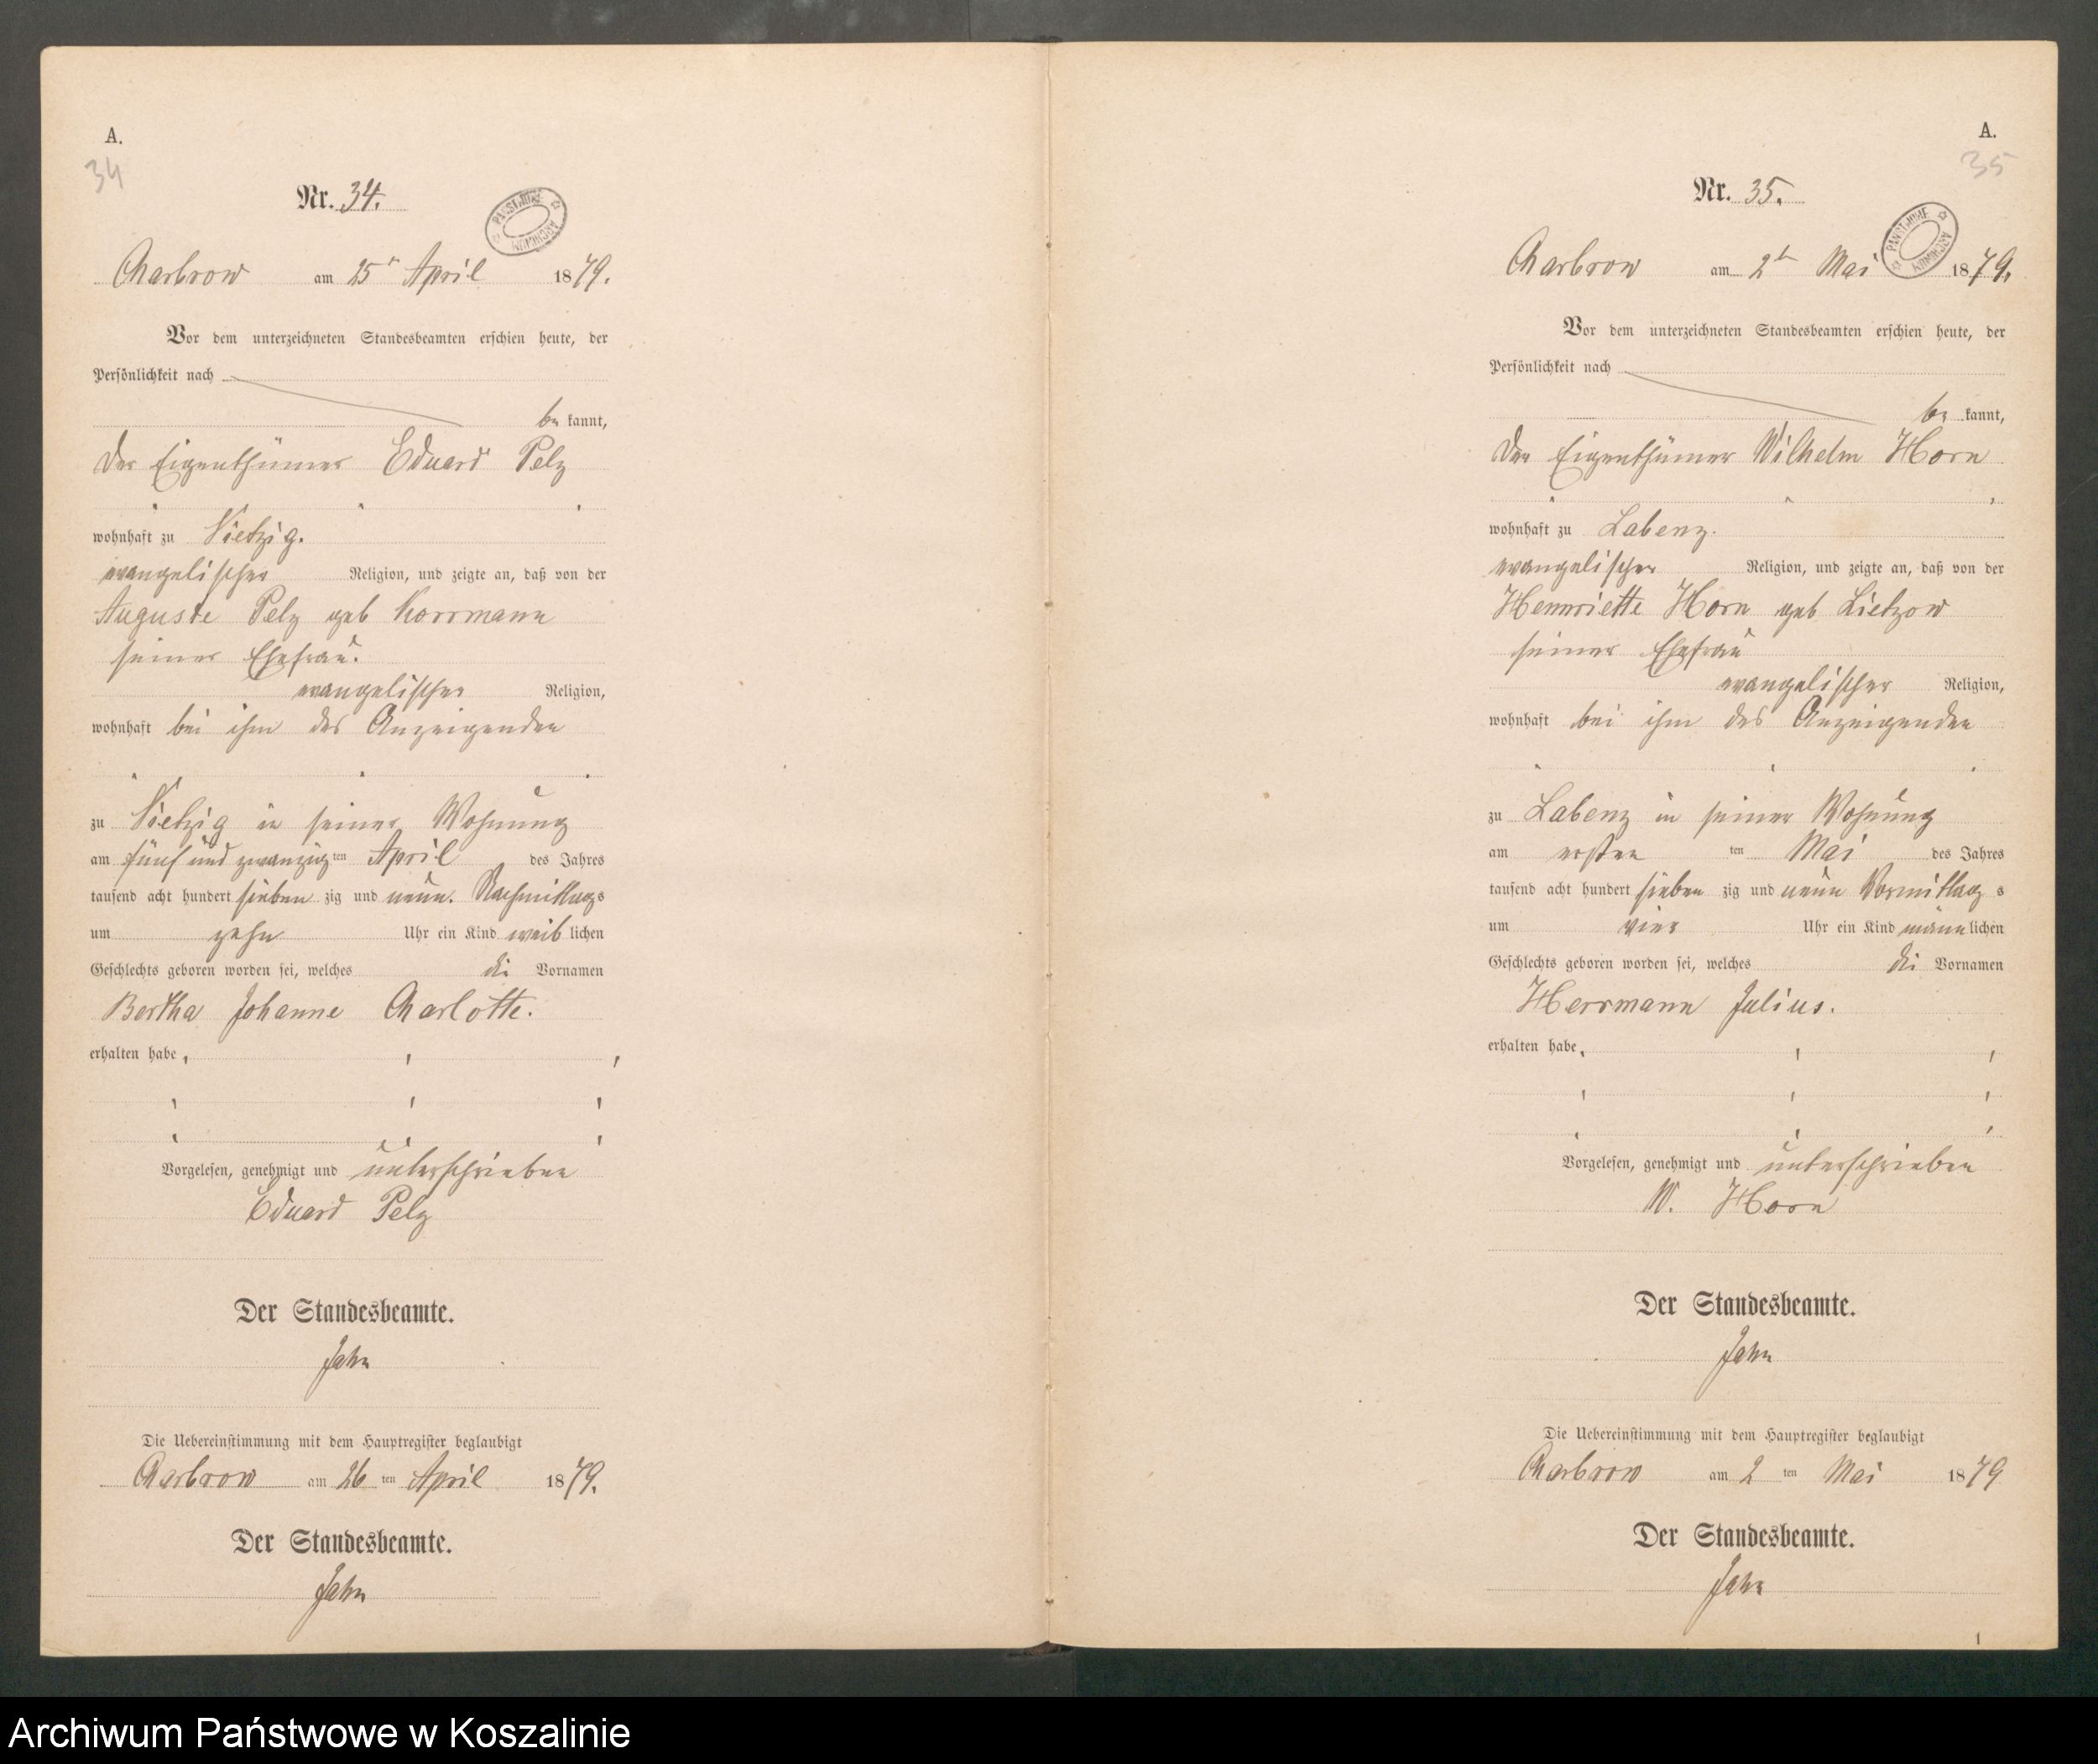 A.
34
Nr. 34.
PAŃSTWOWE ARCHIWUM
Charbrow am 25t April 1879.
Vor dem unterzeichneten Standesbeamten erschien heute, der
Persönlichkeit nach
be kannt,
der Eigenthümer Eduard Pelz
wohnhaft zu Vietzig.
evangelischer Religion, und zeigte an, daß von der
Auguste Pelz geb Korrmann
seiner Ehefrau.
evangelischer Religion,
wohnhaft bei ihm des Anzeigenden
zu Vietzig in seiner Wohnung
am fünf und zwanzig ten April des Jahres
tausend acht hundert sieben zig und neun. Nachmittags
um zehn Uhr ein Kind weiblichen
Geschlechts geboren worden sei, welches die Vornamen
Bertha Johanne Charlotte.
erhalten habe,
Vorgelesen, genehmigt und unterschrieben
Eduard Pelz
Der Standesbeamte.
Jahn
Die Uebereinstimmung mit dem Hauptregister beglaubigt
Charbrow am 26 ten April 1879.
Der Standesbeamte.
Jahn
A.
35
Nr. 35.
PAŃSTWOWE ARCHIWUM
Charbrow am 2t Mai 1879.
Vor dem unterzeichneten Standesbeamten erschien heute, der
Persönlichkeit nach
be kannt,
der Eigenthümer Wilhelm Horn
wohnhaft zu Labenz.
evangelischer Religion, und zeigte an, daß von der
Hennriette Horn geb Lietzow
seiner Ehefrau
evangelischer Religion,
wohnhaft bei ihm des Anzeigenden
zu Labenz in seiner Wohnung
am ersten ten Mai des Jahres
tausend acht hundert sieben zig und neun Vormittags
um vier Uhr ein Kind männlichen
Geschlechts geboren worden sei, welches die Vornamen
Herrmann Julius.
erhalten habe,
Vorgelesen, genehmigt und unterschrieben
W. Horn
Der Standesbeamte.
Jahn
Die Uebereinstimmung mit dem Hauptregister beglaubigt
Charbrow am 2 ten Mai 1879
Der Standesbeamte.
Jahn
Archiwum Państwowe w Koszalinie